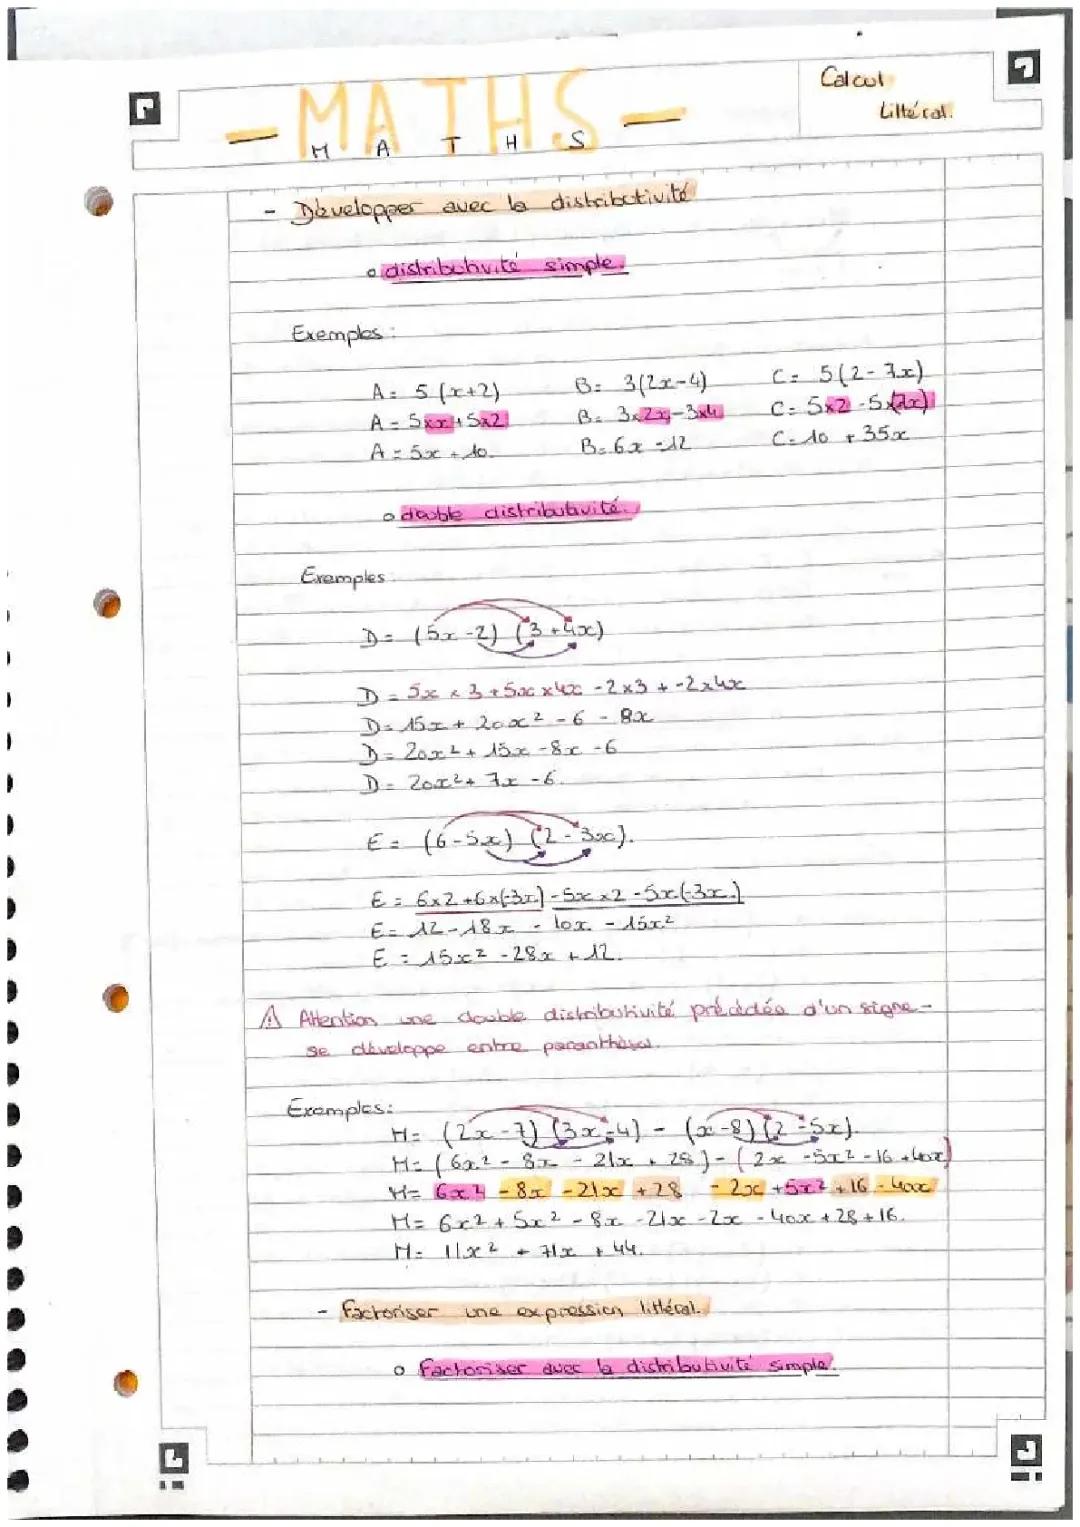 Calcul
Littéral.
- MATHS -
M A T H S
- Développer avec la distributivité
o distributivité simple.
Exemples :
A = 5 (x+2) B = 3(2x-4) C = 5(2-7x)
A = 5xx+5x2 B = 3x2x-3x4 C = 5x2-5x(7x)
A = 5x + 10. B = 6x -12 C = 10 + 35x
o double distributivité.
Exemples
D = (5x-2) (3+4x)
D = 5x x 3 + 5x x 4x - 2x3 + -2x4x
D = 15x + 20x² - 6 - 8x
D = 20x² + 15x - 8x - 6
D = 20x² + 7x - 6.
E = (6-5x) (2-3x).
E = 6x2+6x(-3x)-5x x2 -5x(-3x.)
E = 12-18x - 10x - 15x²
E = 15x² - 28x + 12.
⚠ Attention une double distributivité précédée d'un signe -
se développe entre paranthèses.
Exemples:
H = (2x-7) (3x-4) - (x-8)(2-5x).
H = (6x² - 8x - 21x + 28) - (2x -5x² -16 +40x)
H = 6x² - 8x - 21x + 28 - 2x + 5x² + 16 - 40x
H = 6x² + 5x² - 8x - 21x - 2x - 40x + 28 + 16.
H = 11x² + 71x + 44.
- Factoriser une expression littéral.
o Factoriser avec la distributivité simple.